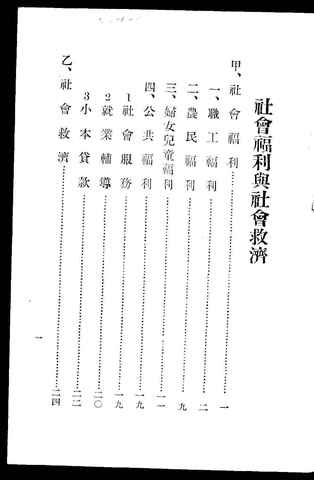 社會福利與社會救濟
甲、社會福利……一
一、職工福利……二
二、農民福利……九
三、婦女兒童福利……一一
四、公共福利……一九
1社會服務……一九
2就業輔導……二〇
3小本貸款……二二
乙、社會救濟……二四
一